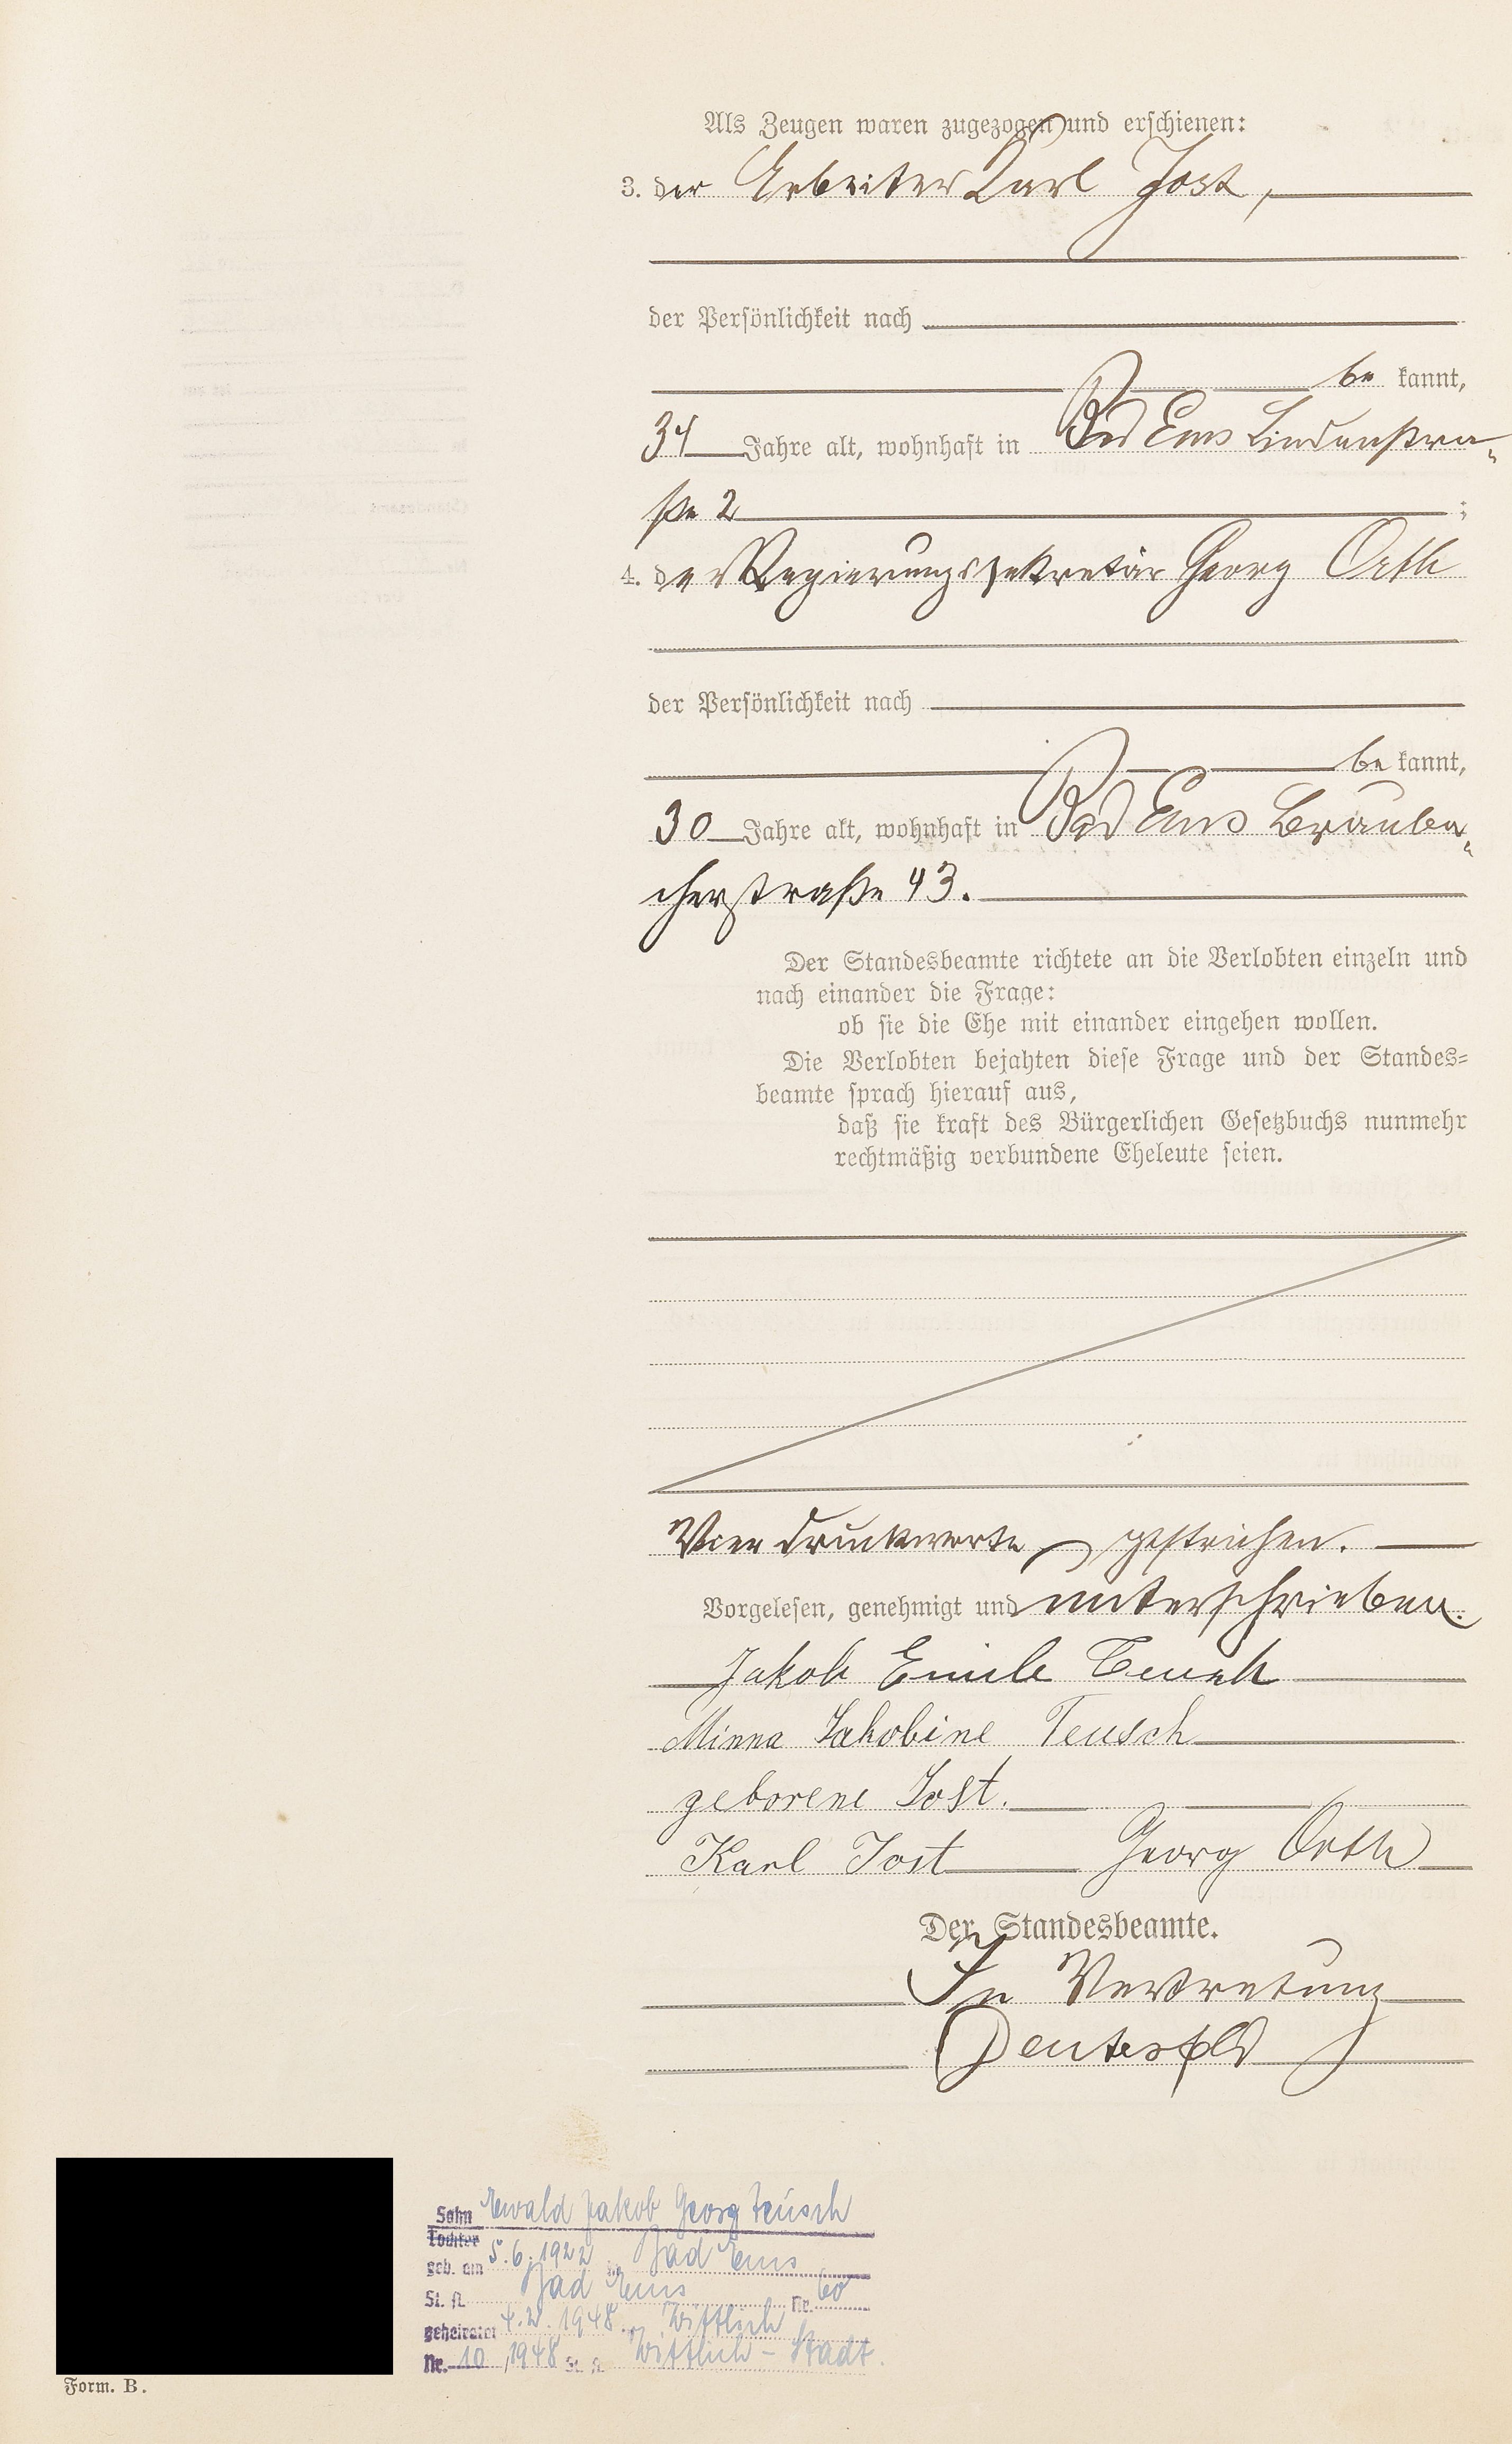 Als Zeugen waren zugezogen und erschienen:
3. der Arbeiter Karl Jost,
der Persönlichkeit nach
be kannt,
34 Jahre alt, wohnhaft in Bad Ems Lindenstra-
ße 2 ;
4. der Regierungssekretär Georg Orth
der Persönlichkeit nach
be kannt,
30 Jahre alt, wohnhaft in Bad Ems Brauba-
cherstraße 43.
Der Standesbeamte richtete an die Verlobten einzeln und
nach einander die Frage:
ob sie die Ehe mit einander eingehen wollen.
Die Verlobten bejahten diese Frage und der Standes-
beamte sprach hierauf aus,
daß sie kraft des Bürgerlichen Gesetzbuchs nunmehr
rechtmäßig verbundene Eheleute seien.
Vier Druckworte gestrichen.
Vorgelesen, genehmigt und unterschrieben.
Jakob Emile Teusch
Minna Jakobine Teusch
geborene Jost.
Karl Jost Georg Orth
Der Standesbeamte.
In Vertretung
Sohn Ewald Jakob Georg Teusch
Tochter
geb. am 5.6.1922 in Bad Ems
St. A. Bad Ems Nr. 60
geheiratet 4.2.1948 in Wittlich
Nr. 10, 1948 St. A. Wittlich-Stadt.
Form. B.